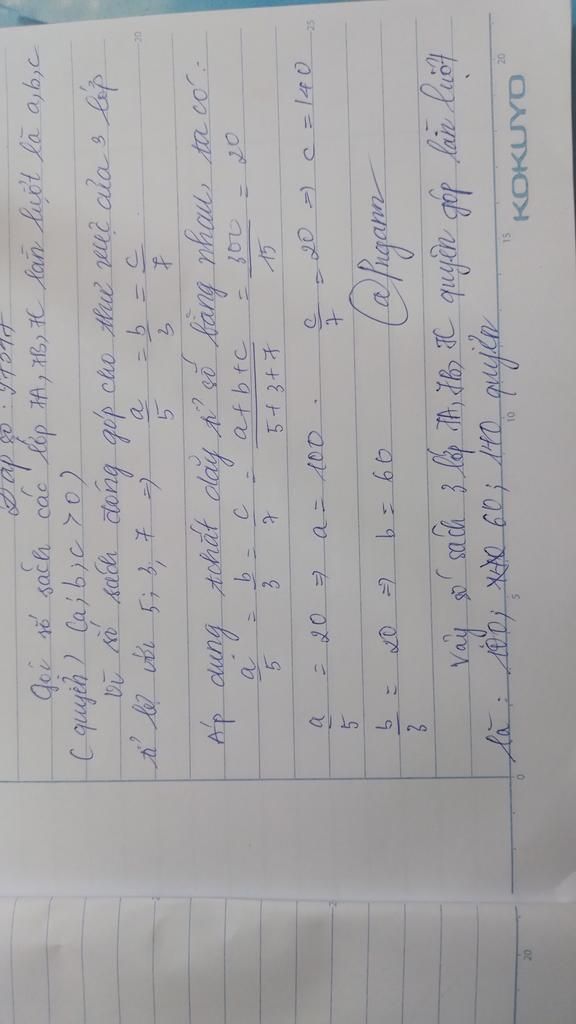 Gọi số sách các lớp 7A, 7B, 7C lần lượt là a, b, c
(quyển) (a; b; c > 0)
Vì số sách đóng góp cho thư viện của 3 lớp
tỉ lệ với 5; 3; 7 => a/5 = b/3 = c/7
Áp dụng tchất dãy tỉ số bằng nhau, ta có:
a/5 = b/3 = c/7 = a+b+c/5+3+7 = 300/15 = 20
a/5 = 20 => a = 100. c/7 = 20 => c = 140
b/3 = 20 => b = 60
Vậy số sách 3 lớp 7A, 7B, 7C quyên góp lần lượt
là: 100; 60; 140 quyển
KOKUYO
0 5 10 15 20
20 25
20